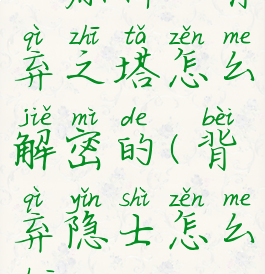 qì zhī tǎ zěn me
弃之塔怎么
jiě mì de bèi
解密的(背
qì yǐn shì zěn me
弃隐士怎么